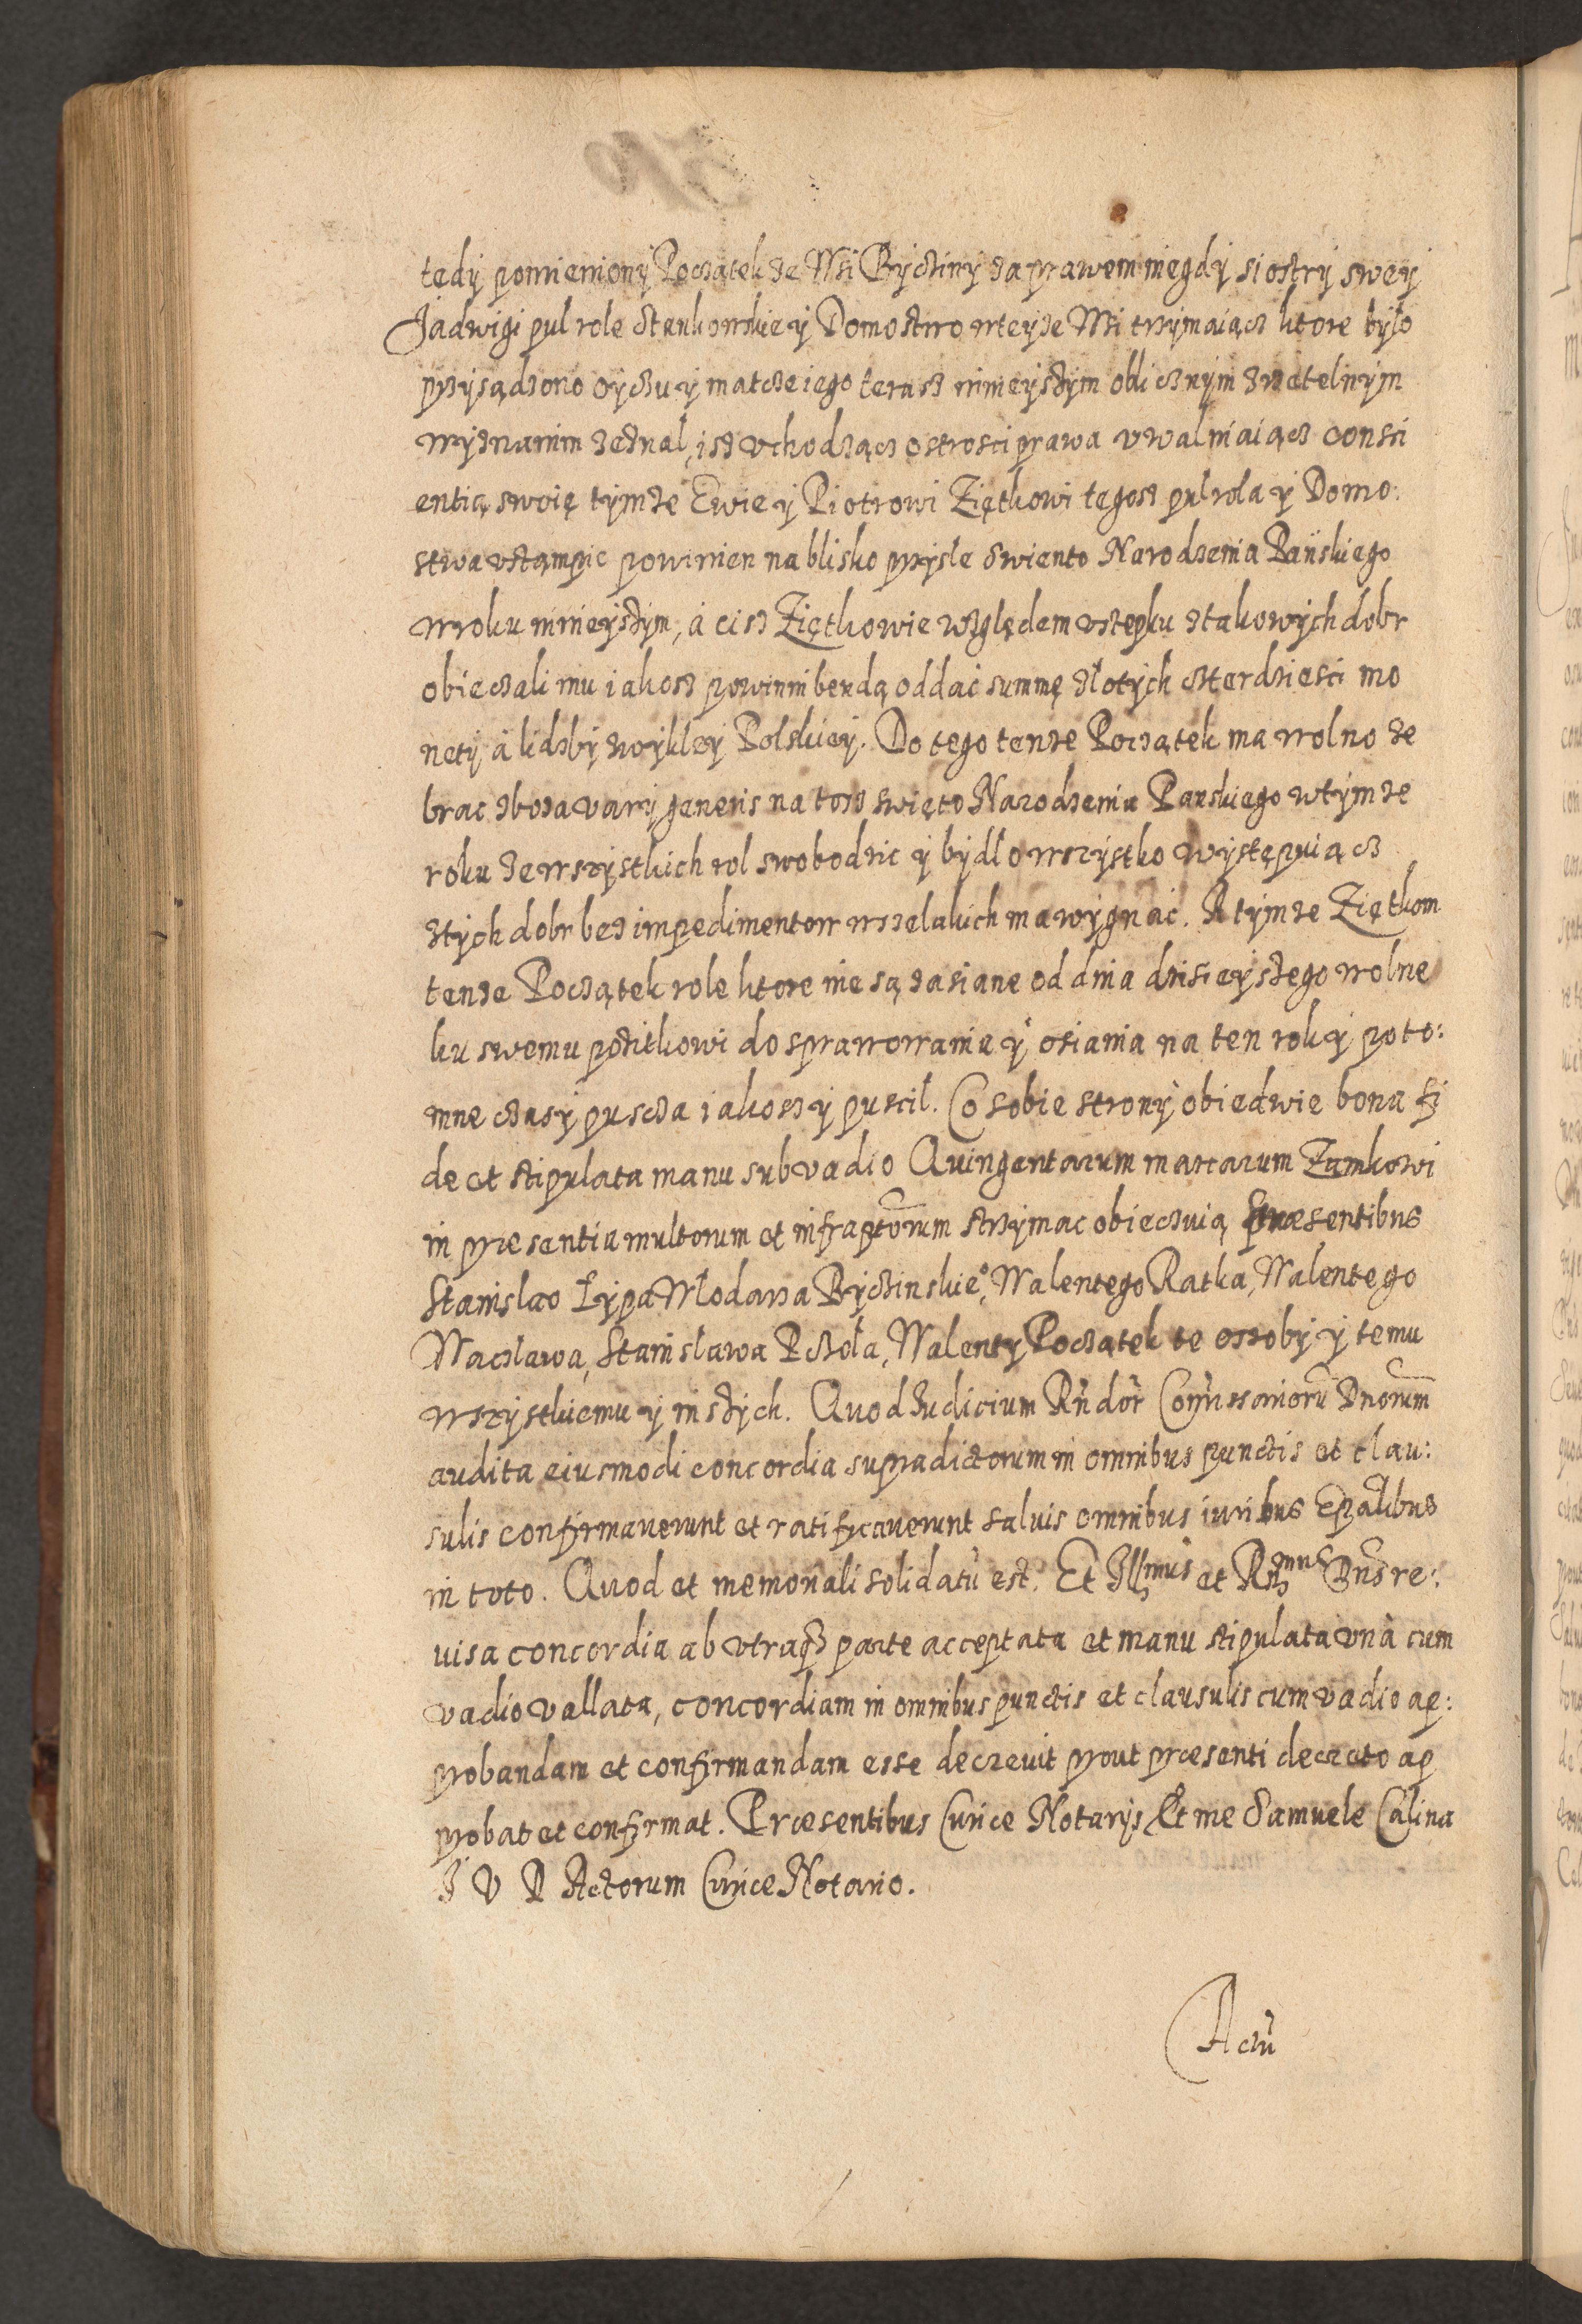 tedy pomieniony Początek ze Wsi Byczyny za prawem niegdy siostry swey
Jadwigi pul role Stankowskiey Domostwo wteyze Wsi trzymaiącz ktore było
przysądzono oyczu y matcze iego terasz ninieyszym oblicznym zrzetelnym
wyznanim zeznal, isz vchodzącz ostrosci prawa vwalniaiącz consci
entią swoię tymze Ewie y Piotrowi Ziętkowi tegosz pul rola y Domo:
stwa vstampic powinien na blisko przysłe Swiento Narodzenia Pańskiego
wroku ninieyszym, á cisz Ziętkowie względem vstepku ztakowych dobr
obieczali mu iakosz powinni bendą oddać summę złotych czterdziesci mo
nety á lidzby zwykley Polskiey. Do tego tenze Początek ma wolno ze
brac zboza varij generis na tosz swięto Narodzenia Panskiego wtymze
roku ze wszystkich rol swobodnie y bydlo wszystko występuiącz
ztych dobr bez impedimentow wszelakich ma wygnać. A tymze Ziętkom
tenze Początek role ktore nie są zasiane od dnia dzisieyszego wolne
ku swemu pozitkowi do sprawowania y osiania na ten rok y poto:
mne czasy puscza iakosz y puscil. Co sobie strony obiedwie bona fi
de et stipulata manu sub vadio Quingentarum marcarum Zamkowi
in præsentia multorum et infraptorum strzymac obiecuią præsentibus
Stanislao Łypa Włodarza Byczinskieo, Walentego Ratka, Walentego
Waczlawa, Stanislawa Pczola, Walenty Początek te ossoby y temu
wszystkiemu y inszych. Quod Judicium Rndor Comissariorũ Dnorum
audita eiusmodi concordia supradictorum in omnibus punctis et clau:
sulis confirmauerunt et ratificauerunt saluis omnibus iuribus Epalibus
in toto. Quod et memoriali solidatũ est. Et Illmus et Rmus Dns re:
uisa concordia ab vtraq3 parte acceptata et manu stipulata vnà cum
vadio vallata, concordiam in omnibus punctis et clausulis cum vadio ap:
probandam et confirmandam esse decreuit prout præsenti decreto ap
probat et confirmat. Præsentibus Curiæ Notarijs Et me Samuele Calina
J V D Actorum Curiæ Notario.
Actũ